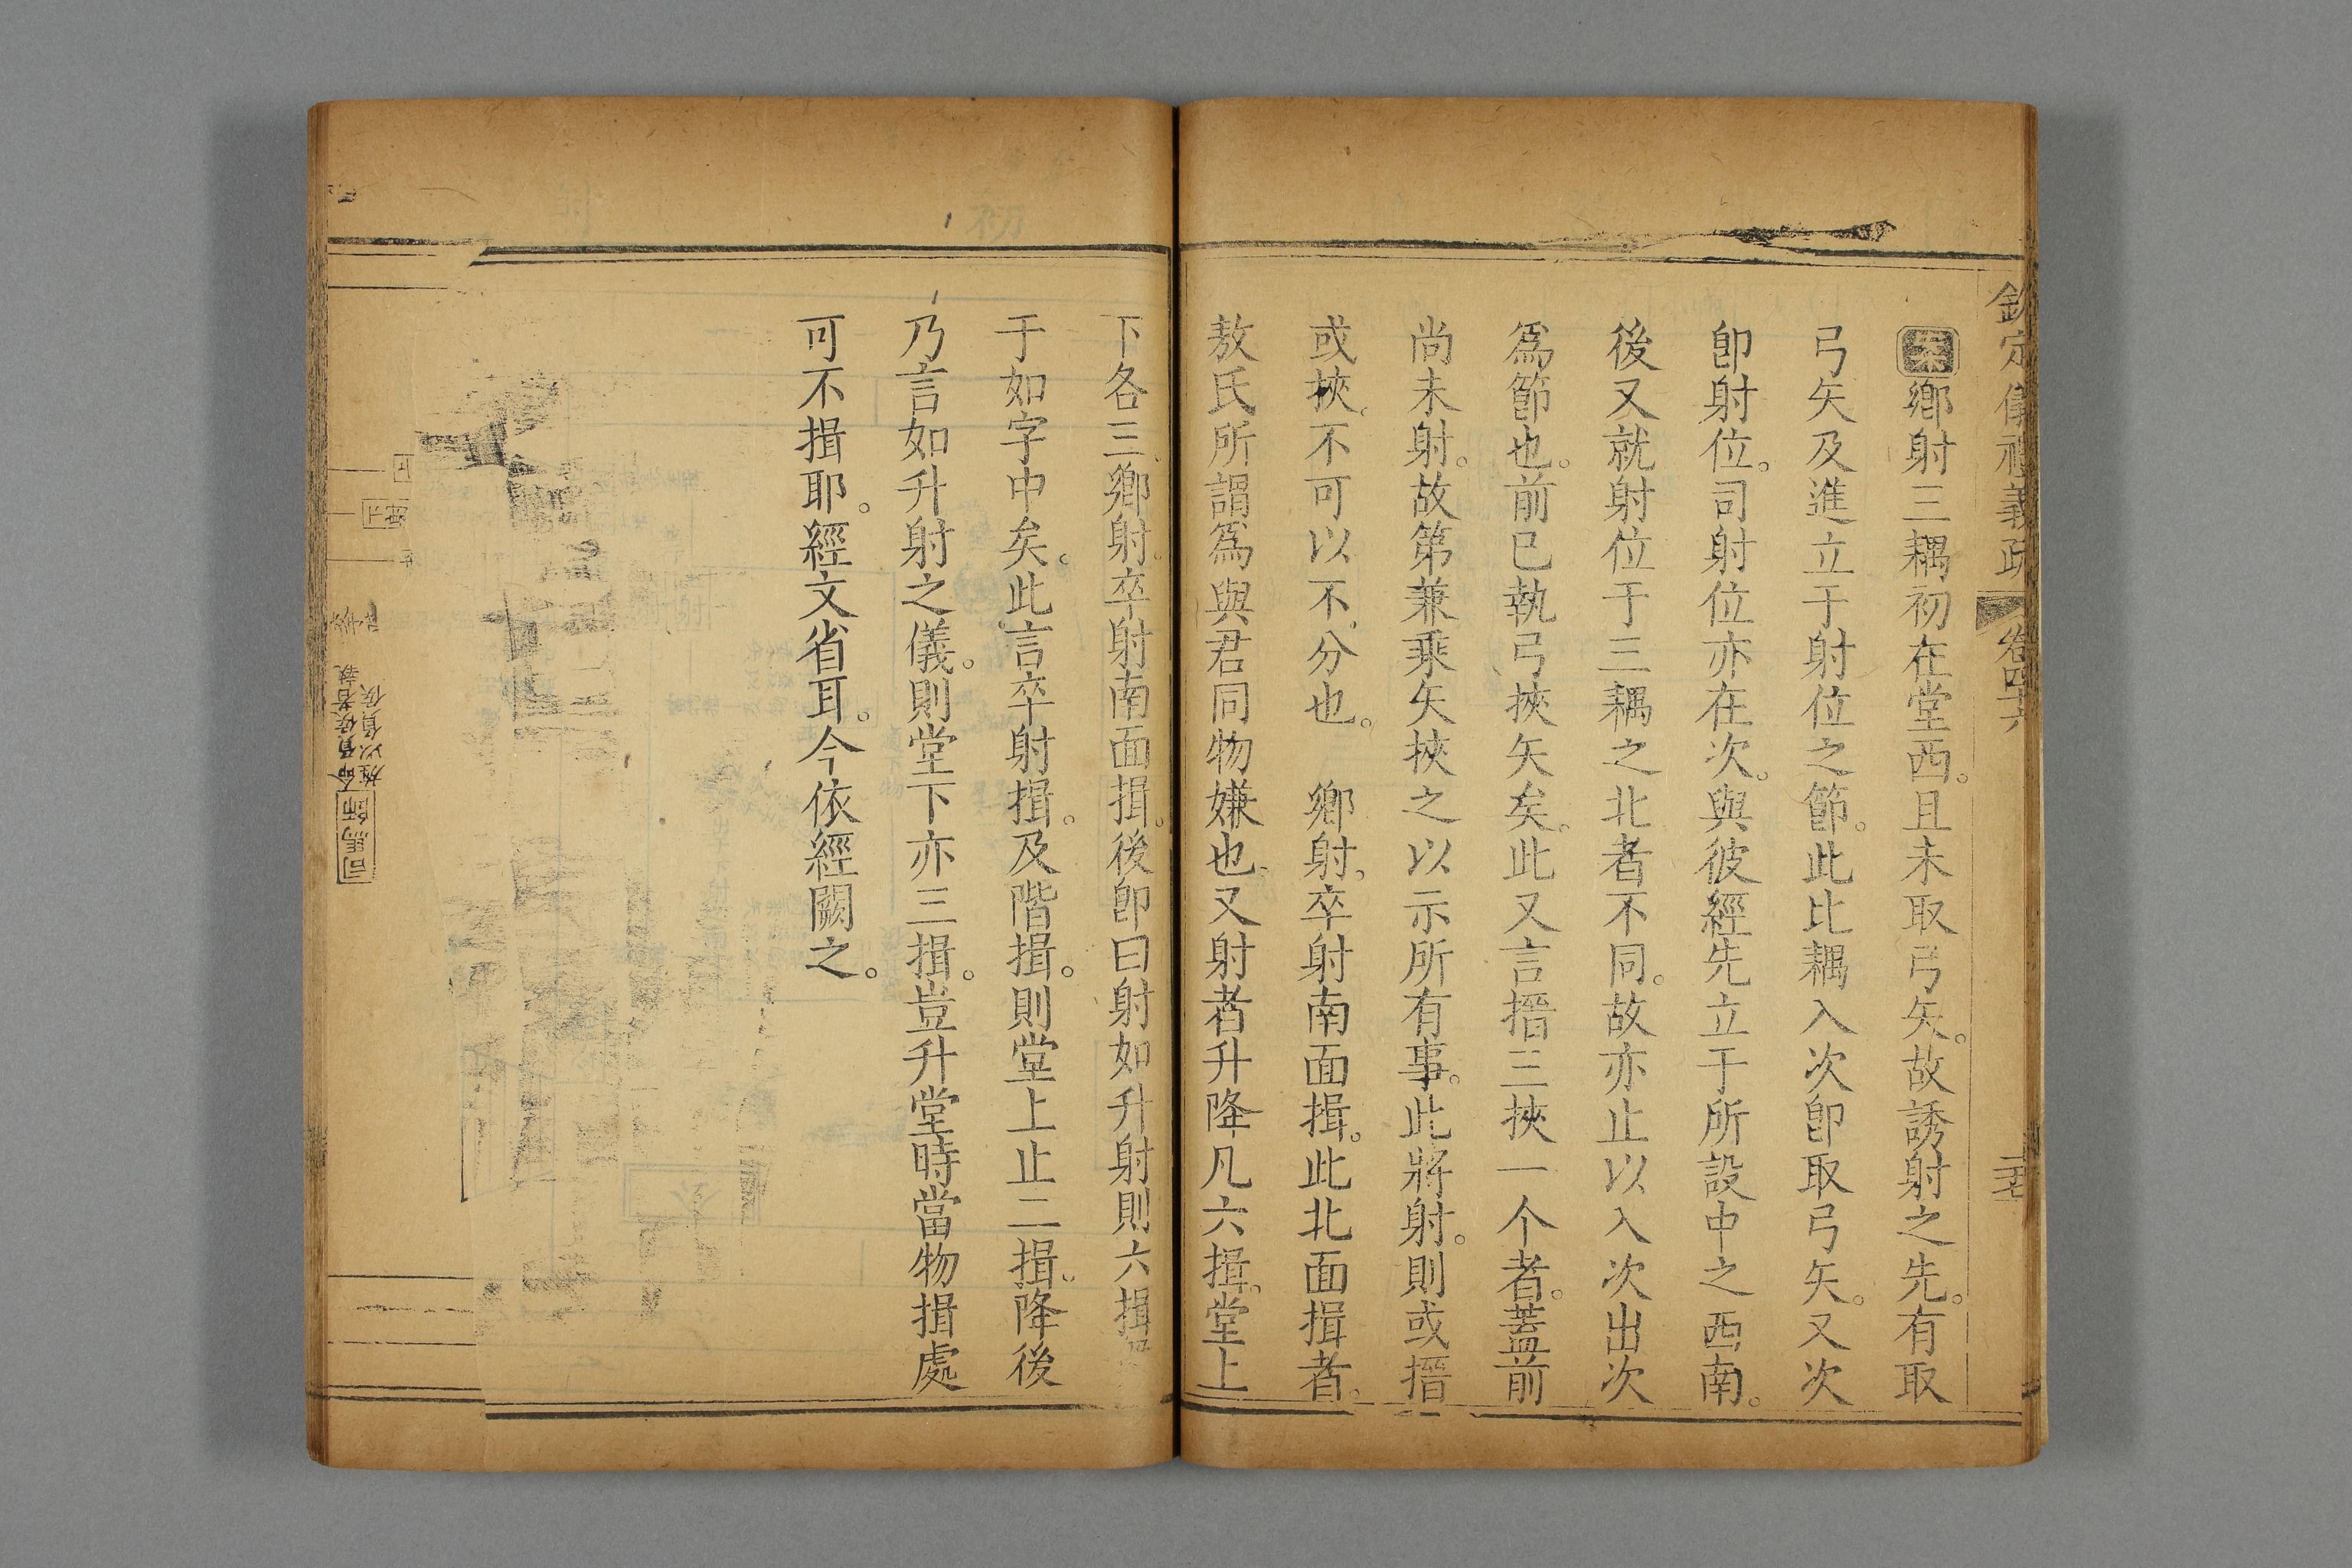 欽定儀禮義疏 卷四十六
案鄉射三耦初在堂西。且未取弓矢。故誘射之先。有取
弓矢及進立于射位之節。此比耦入次卽取弓矢。又次
卽射位。司射位亦在次。與彼經先立于所設中之西南。
後又就射位于三耦之北者不同。故亦止以入次出次
爲節也。前已執弓挾矢矣。此又言搢三挾一个者。蓋前
尚未射。故第兼乘矢挾之以示所有事。此將射。則或搢
或挾。不可以不分也。 鄉射。卒射南面揖。此北面揖者。
敖氏所謂爲與君同物嫌也。又射者升降凡六揖。堂上
下各三鄉射。卒射南面揖。後卽曰射如升射則六揖
于如字中矣。此言卒射揖。及階揖。則堂上止二揖。降後
乃言如升射之儀。則堂下亦三揖。豈升堂時當物揖處
可不揖耶。經文省耳。今依經闕之。
司馬師
命負侯者執
旌以負侯